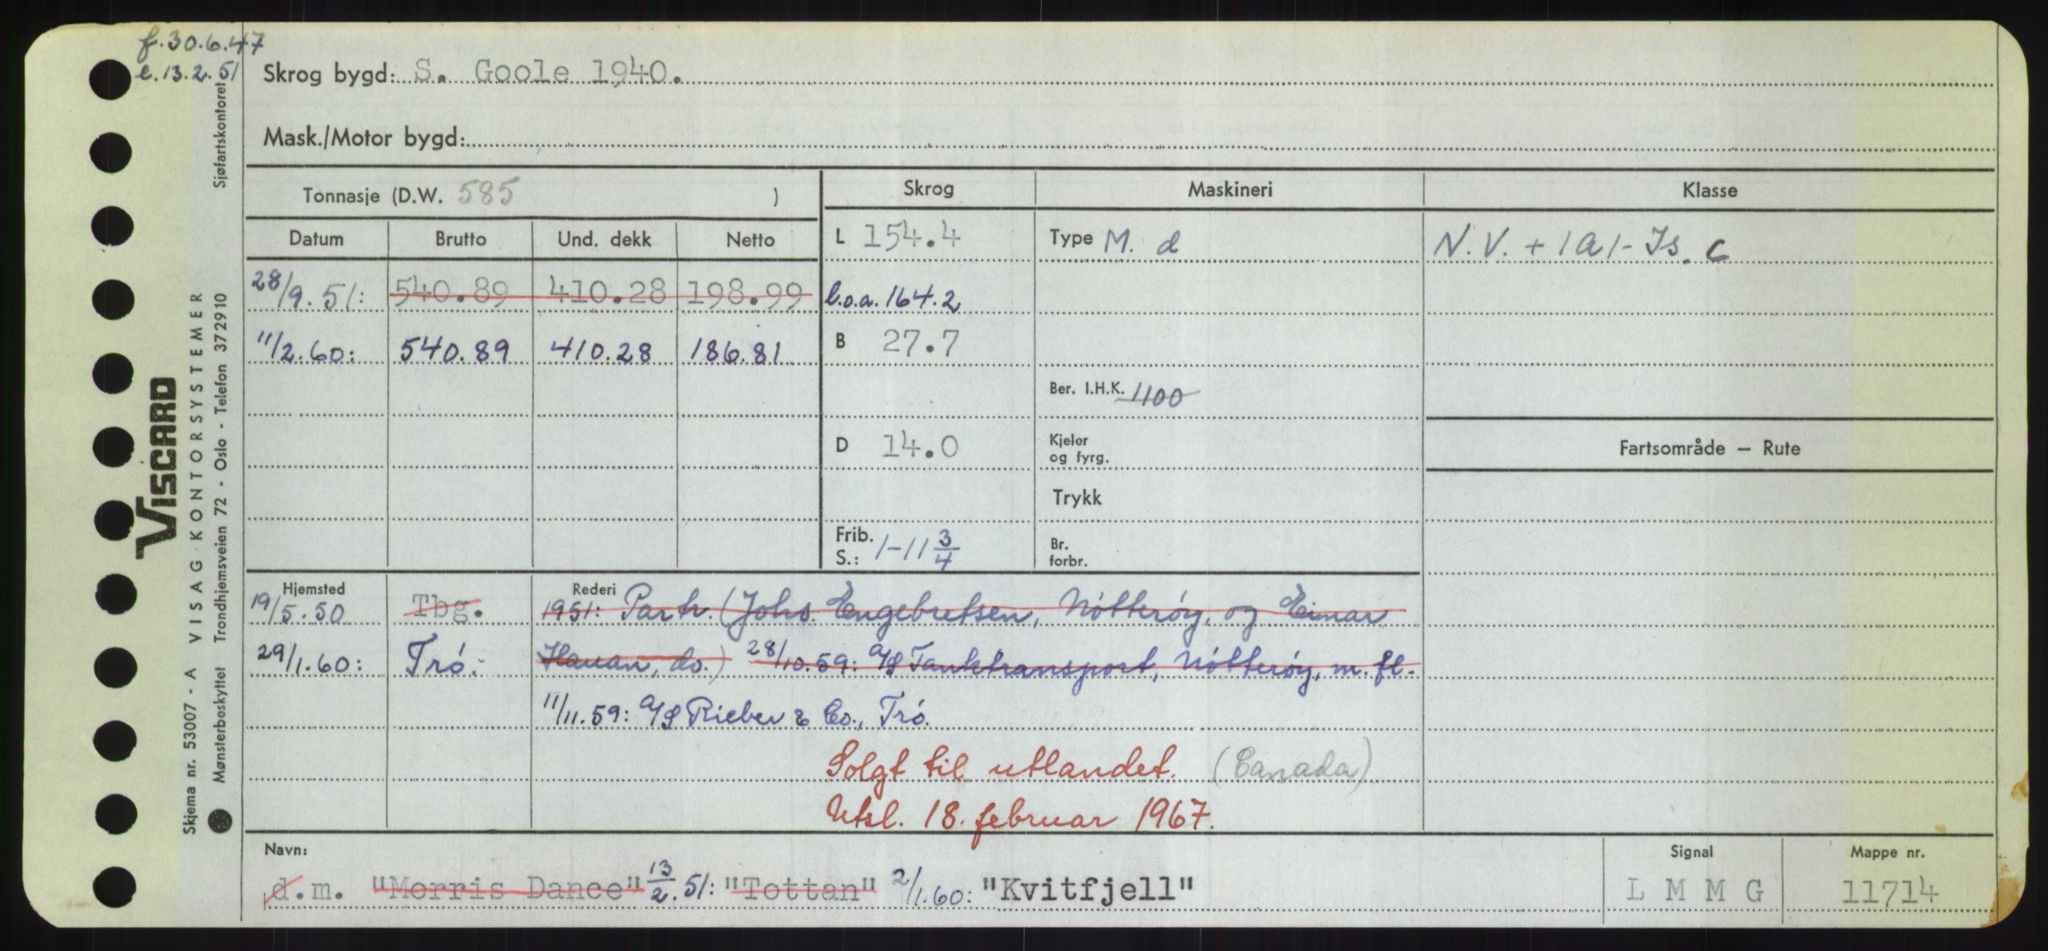 f. 30.6.47
l. 13.2.51
Skrog bygd: S. Goole 1940.
Mask./Motor bygd:
Tonnasje (D.W. 585 )
Skrog Maskineri Klasse
Datum Brutto Und. dekk Netto
L 154.4 Type M. d N.V. + 1A1 - Is. C
28/9.51: 540.89 410.28 198.99 l.o.a. 164.2
11/2.60: 540.89 410.28 186.81 B 27.7
Ber. I.H.K. 1100
D 14.0 Kjeler og fyrg. Fartsområde — Rute
Trykk
Frib. S.: 1-11 3/4 Br. forbr.
Hjemsted Rederi
19/5.50 Tbg. 1951: Partr. (Johs. Engebretsen, Nötteröy, og Einar
29/1.60: Trö: Hauan, do.) 28/10.59: A/S Tanktransport, Nötteröy, m.fl.
11/11.59: A/S Rieber & Co., Trö.
Solgt til utlandet. (Canada)
Utsl. 18. februar 1967.
Navn: Signal Mappe nr.
d.m. "Morris Dance" 13/2.51: "Tottan" 2/1.60: "Kvitfjell" L M M G 11714
VISCARD
Skjema nr. 53007 - A VISAG KONTORSYSTEMER
Mønsterbeskyttet Trondhjemsveien 72 - Oslo - Telefon 372910 Sjøfartskontoret